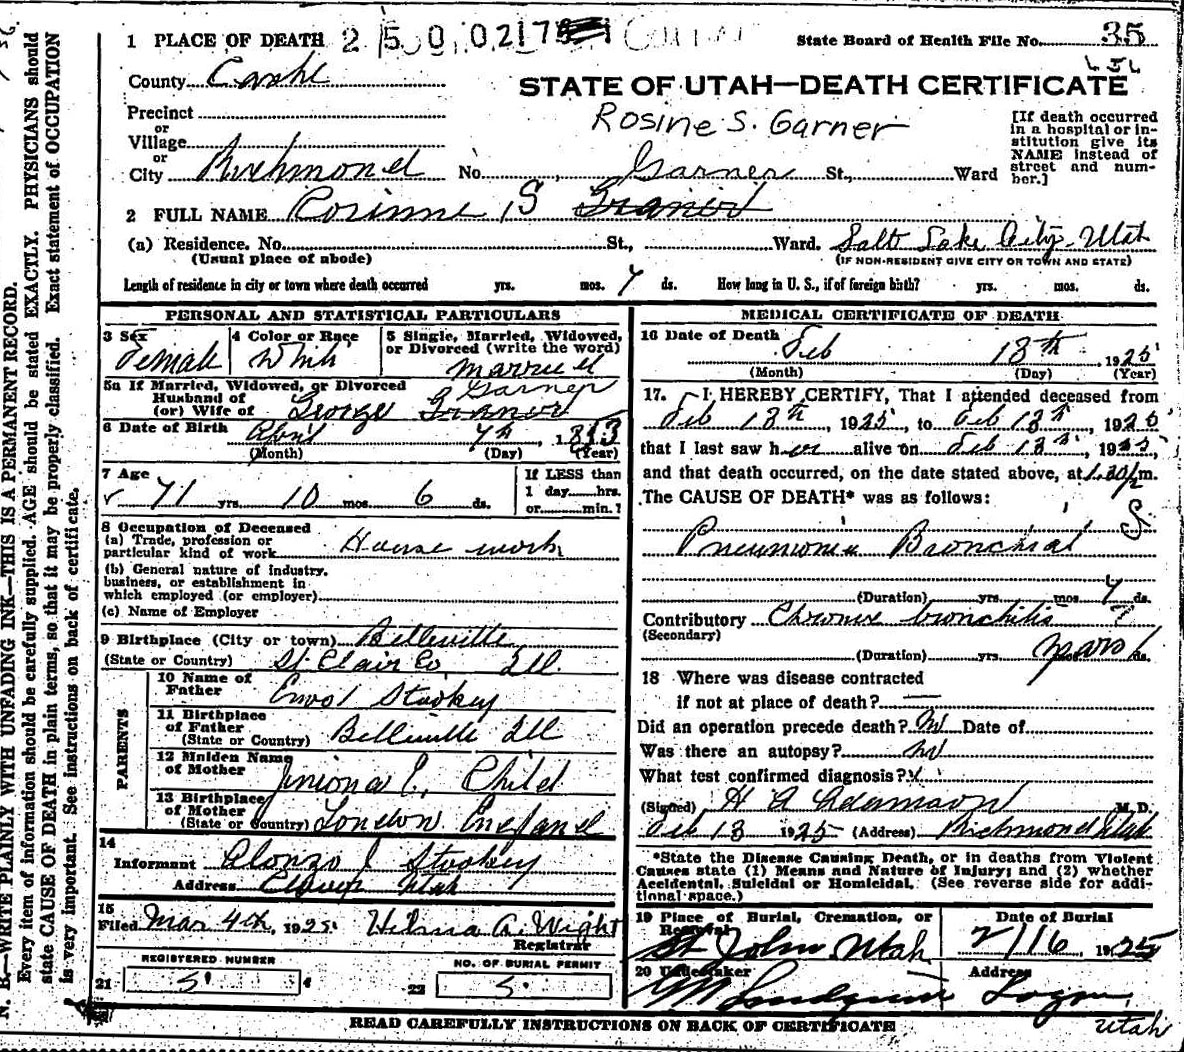 1 PLACE OF DEATH 2 5 0 0 217
State Board of Health File No. 35
County Cache
STATE OF UTAH—DEATH CERTIFICATE
Precinct
Rosine S. Garner
or
Village
or
City Richmond No. St., Ward
Garner
[If death occurred
in a hospital or in-
stitution give its
NAME instead of
street and num-
ber.]
2 FULL NAME Corinne S
(a) Residence. No. St., Ward. Salt Lake City Utah
(Usual place of abode) (IF NON-RESIDENT GIVE CITY OR TOWN AND STATE)
Length of residence in city or town where death occurred yrs. mos. 7 ds. How long in U. S., if of foreign birth? yrs. mos. ds.
PERSONAL AND STATISTICAL PARTICULARS
3 Sex 4 Color or Race 5 Single, Married, Widowed,
or Divorced (write the word)
Female White Married
5a If Married, Widowed, or Divorced
Husband of Garner
(or) Wife of George
6 Date of Birth April 7th, 1853
(Month) (Day) (Year)
7 Age If LESS than
71 yrs. 10 mos. 6 ds. 1 day hrs.
or min.?
8 Occupation of Deceased
(a) Trade, profession or
particular kind of work House work
(b) General nature of industry,
business, or establishment in
which employed (or employer)
(c) Name of Employer
9 Birthplace (City or town) Belleville
(State or Country) St. Clair Co Ill.
PARENTS
10 Name of
Father Stookey
11 Birthplace
of Father
(State or Country) Belleville Ill
12 Maiden Name
of Mother Child
13 Birthplace
of Mother
(State or Country) London England
14
Informant Alonzo J Stookey
Address Clover Utah
15
Filed Mar 4th, 1925 Hilma A. Wight
Registrar
REGISTERED NUMBER NO. OF BURIAL PERMIT
21 5 22 5
MEDICAL CERTIFICATE OF DEATH
16 Date of Death Feb 13th 1925
(Month) (Day) (Year)
17. I HEREBY CERTIFY, That I attended deceased from
Feb 13th, 1925, to Feb 13th, 1925
that I last saw her alive on Feb 13th, 1925,
and that death occurred, on the date stated above, at 1.30 P m.
The CAUSE OF DEATH* was as follows:
Pneumonia Bronchial
(Duration) yrs. mos. 7 ds.
Contributory Chronic bronchitis ?
(Secondary)
(Duration) yrs. years ds.
18 Where was disease contracted
if not at place of death? —
Did an operation precede death? No Date of
Was there an autopsy? no
What test confirmed diagnosis?
(Signed) H A Adamson M.D.
Feb 13 1925 (Address) Richmond Utah
*State the Disease Causing Death, or in deaths from Violent
Causes state (1) Means and Nature of Injury; and (2) whether
Accidental, Suicidal or Homicidal. (See reverse side for addi-
tional space.)
19 Place of Burial, Cremation, or Date of Burial
Removal
St John Utah 2/16 1925
20 Undertaker Address
Logan,
Utah
READ CAREFULLY INSTRUCTIONS ON BACK OF CERTIFICATE
N. B.—WRITE PLAINLY WITH UNFADING INK—THIS IS A PERMANENT RECORD.
Every item of information should be carefully supplied. AGE should be stated EXACTLY. PHYSICIANS should
state CAUSE OF DEATH in plain terms, so that it may be properly classified. Exact statement of OCCUPATION
is very important. See instructions on back of certificate.